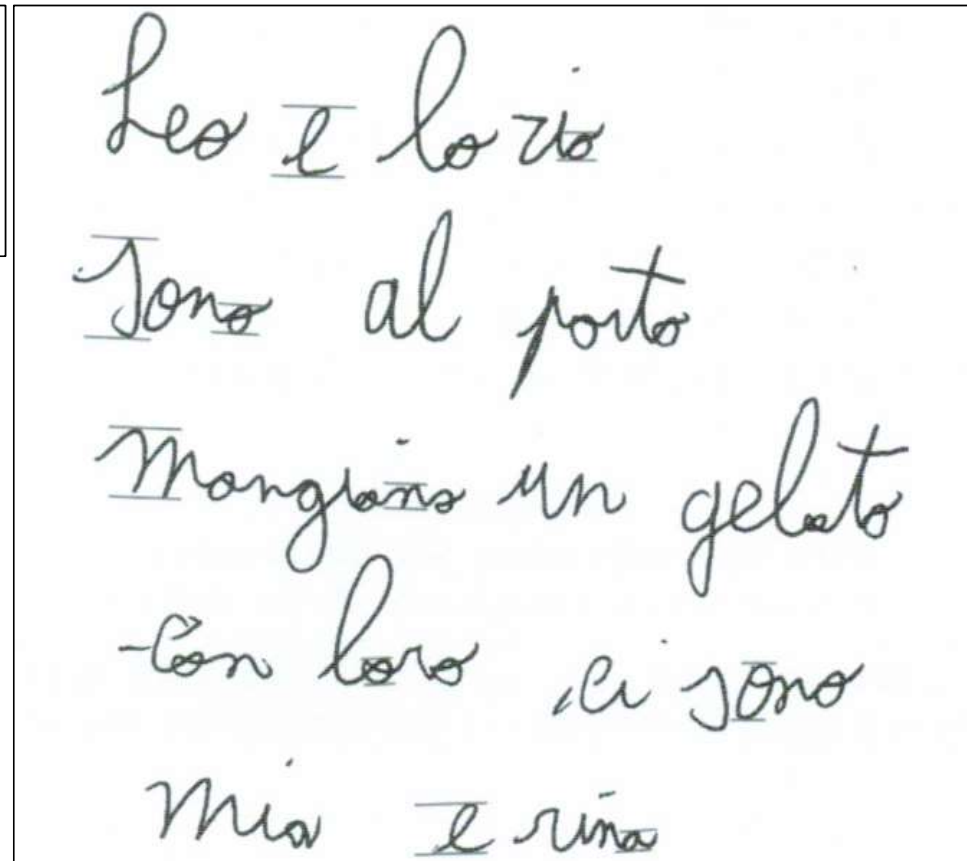 Leo e lo zio
sono al porto
Mangiano un gelato
Con loro ci sono
Mia e rina